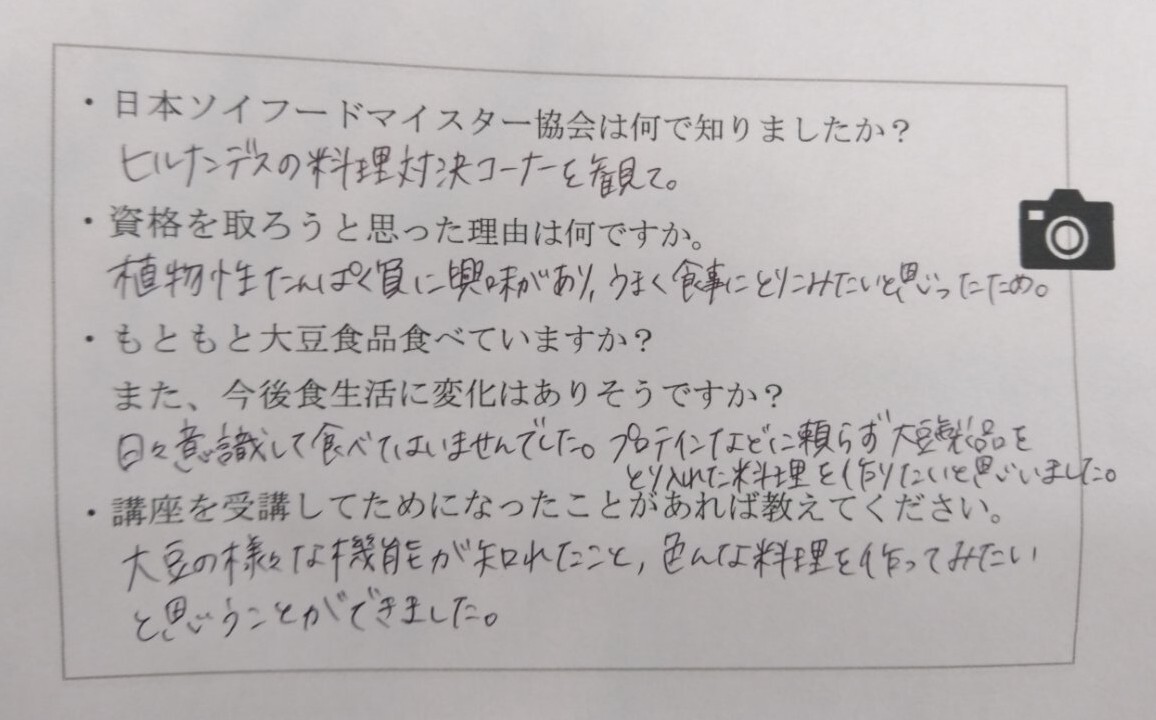 ・日本ソイフードマイスター協会は何で知りましたか？
ヒルナンデスの料理対決コーナーを観て。
・資格を取ろうと思った理由は何ですか。
植物性たんぱく質に興味があり、うまく食事にとりこみたいと思ったため。
・もともと大豆食品食べていますか？
また、今後食生活に変化はありそうですか？
日々意識して食べてはいませんでした。プロテインなどに頼らず大豆製品を
とり入れた料理を作りたいと思いました。
・講座を受講してためになったことがあれば教えてください。
大豆の様々な機能が知れたこと、色んな料理を作ってみたい
と思うことができました。